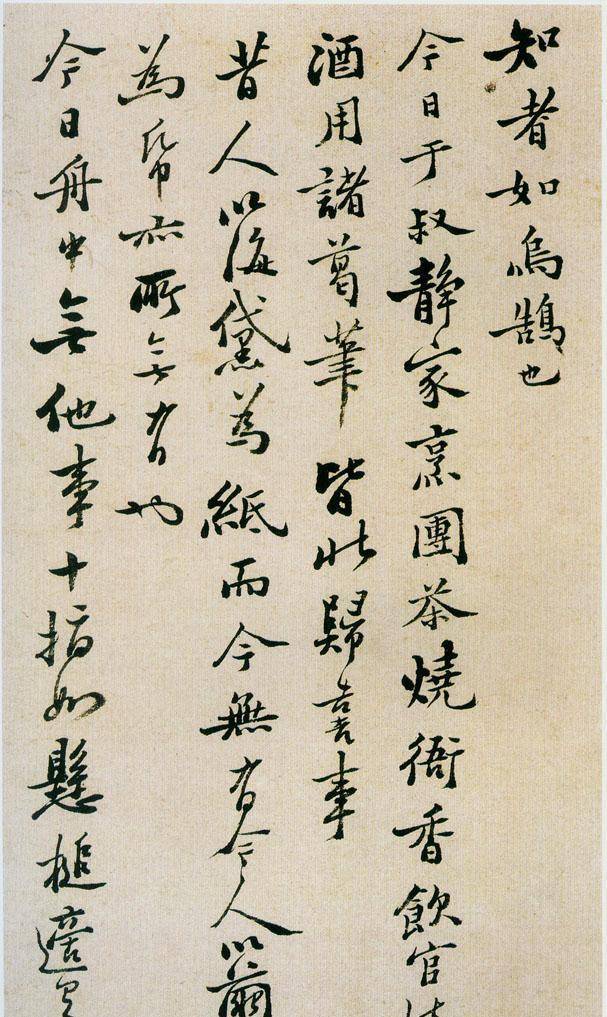 知者如嗚鵠也
今日于叔静家烹團茶燒衙香飲官
酒用諸葛筆皆北歸喜事
昔人以海黛為紙而今無有今人以繭
為帋亦所無有也
今日舟中無他事十指如懸槌適